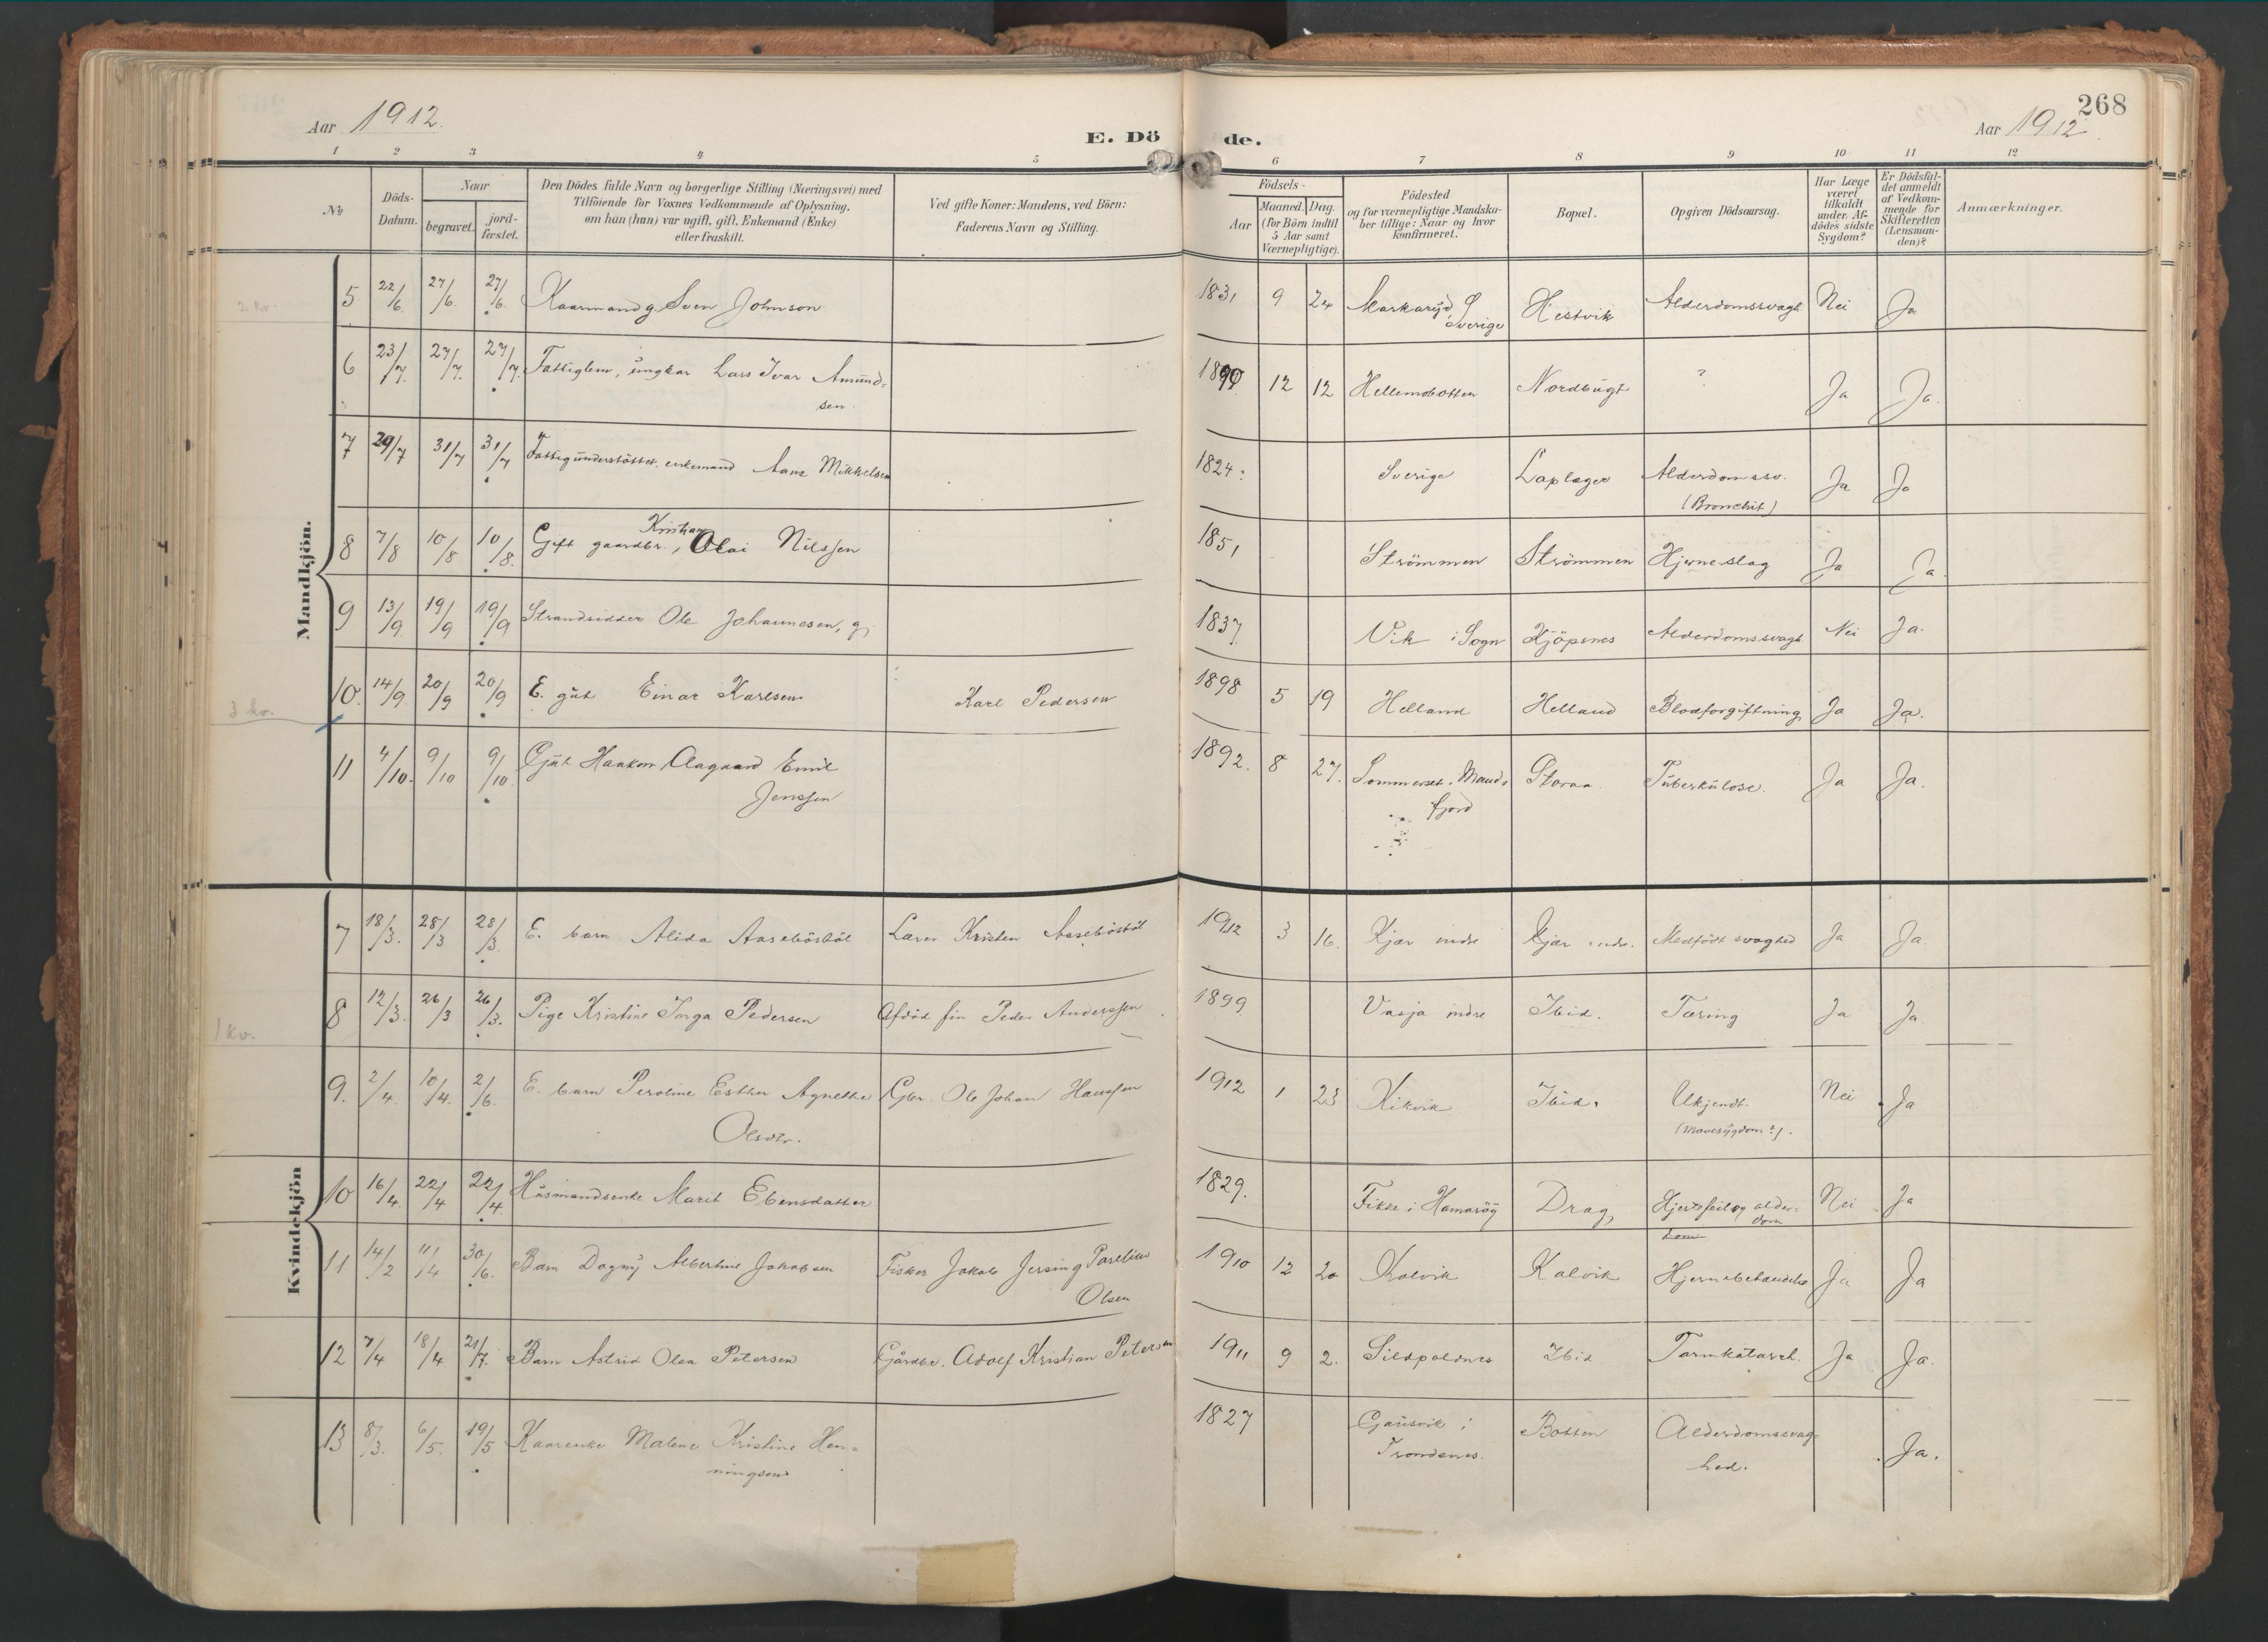 268
Aar 1912.
E. Döde.
Aar 1912.
1 2 3 4 5 6 7 8 9 10 11 12
No
Döds-Datum.
Naar
begravet.
jord-fæstet.
Den Dödes fulde Navn og borgerlige Stilling (Næringsvei) med
Tilföiende for Voxnes Vedkommende af Oplysning,
om han (hun) var ugift, gift, Enkemand (Enke)
eller fraskilt.
Ved gifte Koner: Mandens, ved Börn:
Faderens Navn og Stilling.
Födsels-
Aar
Maaned. Dag.
(for Börn indtil
5 Aar samt
Værnepligtige).
Födested
og for værnepligtige Mandska-
ber tillige: Naar og hvor
konfirmeret.
Bopæl.
Opgiven Dödsaarsag.
Har Læge
været
tilkaldt
under Af-
dödes sidste
Sygdom?
Er Dödsfal-
det anmeldt
af Vedkom-
mende for
Skifteretten
(Lensman-
den)?
Anmærkninger.
Mandkjön.
2 kv.
5 22/6 27/6 27/6. Kaarmand g. Sven Johnson 1831 9 24 Markaryd, Sverige Hestvik Alderdomssvagh. Nei Ja
6 23/7. 27/7. 27/7. Fattiglem, ungkar Lars Ivar Amund-
sen. 1890 12 12 Hellemobotten Nordbugt ? Ja Ja.
7 29/7 31/7 31/7 Fattigunderstöttet, enkemand Mikkelsen 1824. Sverige Laplæger Alderdomssv.
(Bronchit) Ja Ja
8 7/8 10/8 10/8. Gift gaardbr., Kristian Olai Nilssen 1851 Strömmen Strömmen Hjerneslag Ja Ja.
9 13/9. 19/9 19/9 Strandsidder Ole Johannesen, g. 1837. Vik i Sogn Kjöpsnes Alderdomssvagh Nei Ja.
3 kv.
10. 14/9. 20/9 20/9 E. gut Einar Karlsen Karl Pedersen 1898 5 19 Helland Helland Blodforgiftning Ja Ja.
11 4/10. 9/10 9/10 Gut Haakon Aagaard Emil
Jenssen 1892. 8 27. Sommerset. Mands
fjord Storaa. Tuberkulose. Ja Ja.
Kvindekjön
7 18/3. 28/3 28/3. E. barn Alida Aaseböstöl Lærer Kristen Aaseböstöl 1912 3 16. Kjær indre Kjær indr. Medfödt svaghed Ja Ja.
1 kv.
8 12/3. 26/3 26/3. Pige Kristine Inga Pedersen Afdöd fin Peder Anderssen 1899 Vasja indre Ibid. Tæring Ja Ja
9. 2/4. 10/4. 2/6. E. barn Peroline Esther Agnethe
Olsdtr. Gbr. Ole Johan Hanssen 1912 1 23 Kikvik Ibid. Ukjendt.
(Mavesygdom?). Nei Ja
10 16/4. 22/4 22/4. Husmandsenke Marit Ebensdatter 1829. Fikke i Hamaröy Drag, Hjertefeil og alder-
dom Nei Ja
11 14/2 11/4 30/6. Barn Dagny Albertine Jakobsen Fisker Jakob Jersing Parelius
Olsen 1910 12 20 Kalvik Kalvik Ja Ja
12 7/4 18/4 21/7. Barn Astrid Olea Petersen Gårdbr. Adolf Kristian Petersen 1911 9 2. Sildpoldnes Ibid Tarmkatarrh. Ja Ja.
13 8/3. 6/5. 19/5 Kaarenke Malene Kristine Hen-
ningsen 1827 Gausvik i
Trondenes. Botten Alderdomssvag-
hed. Ja.